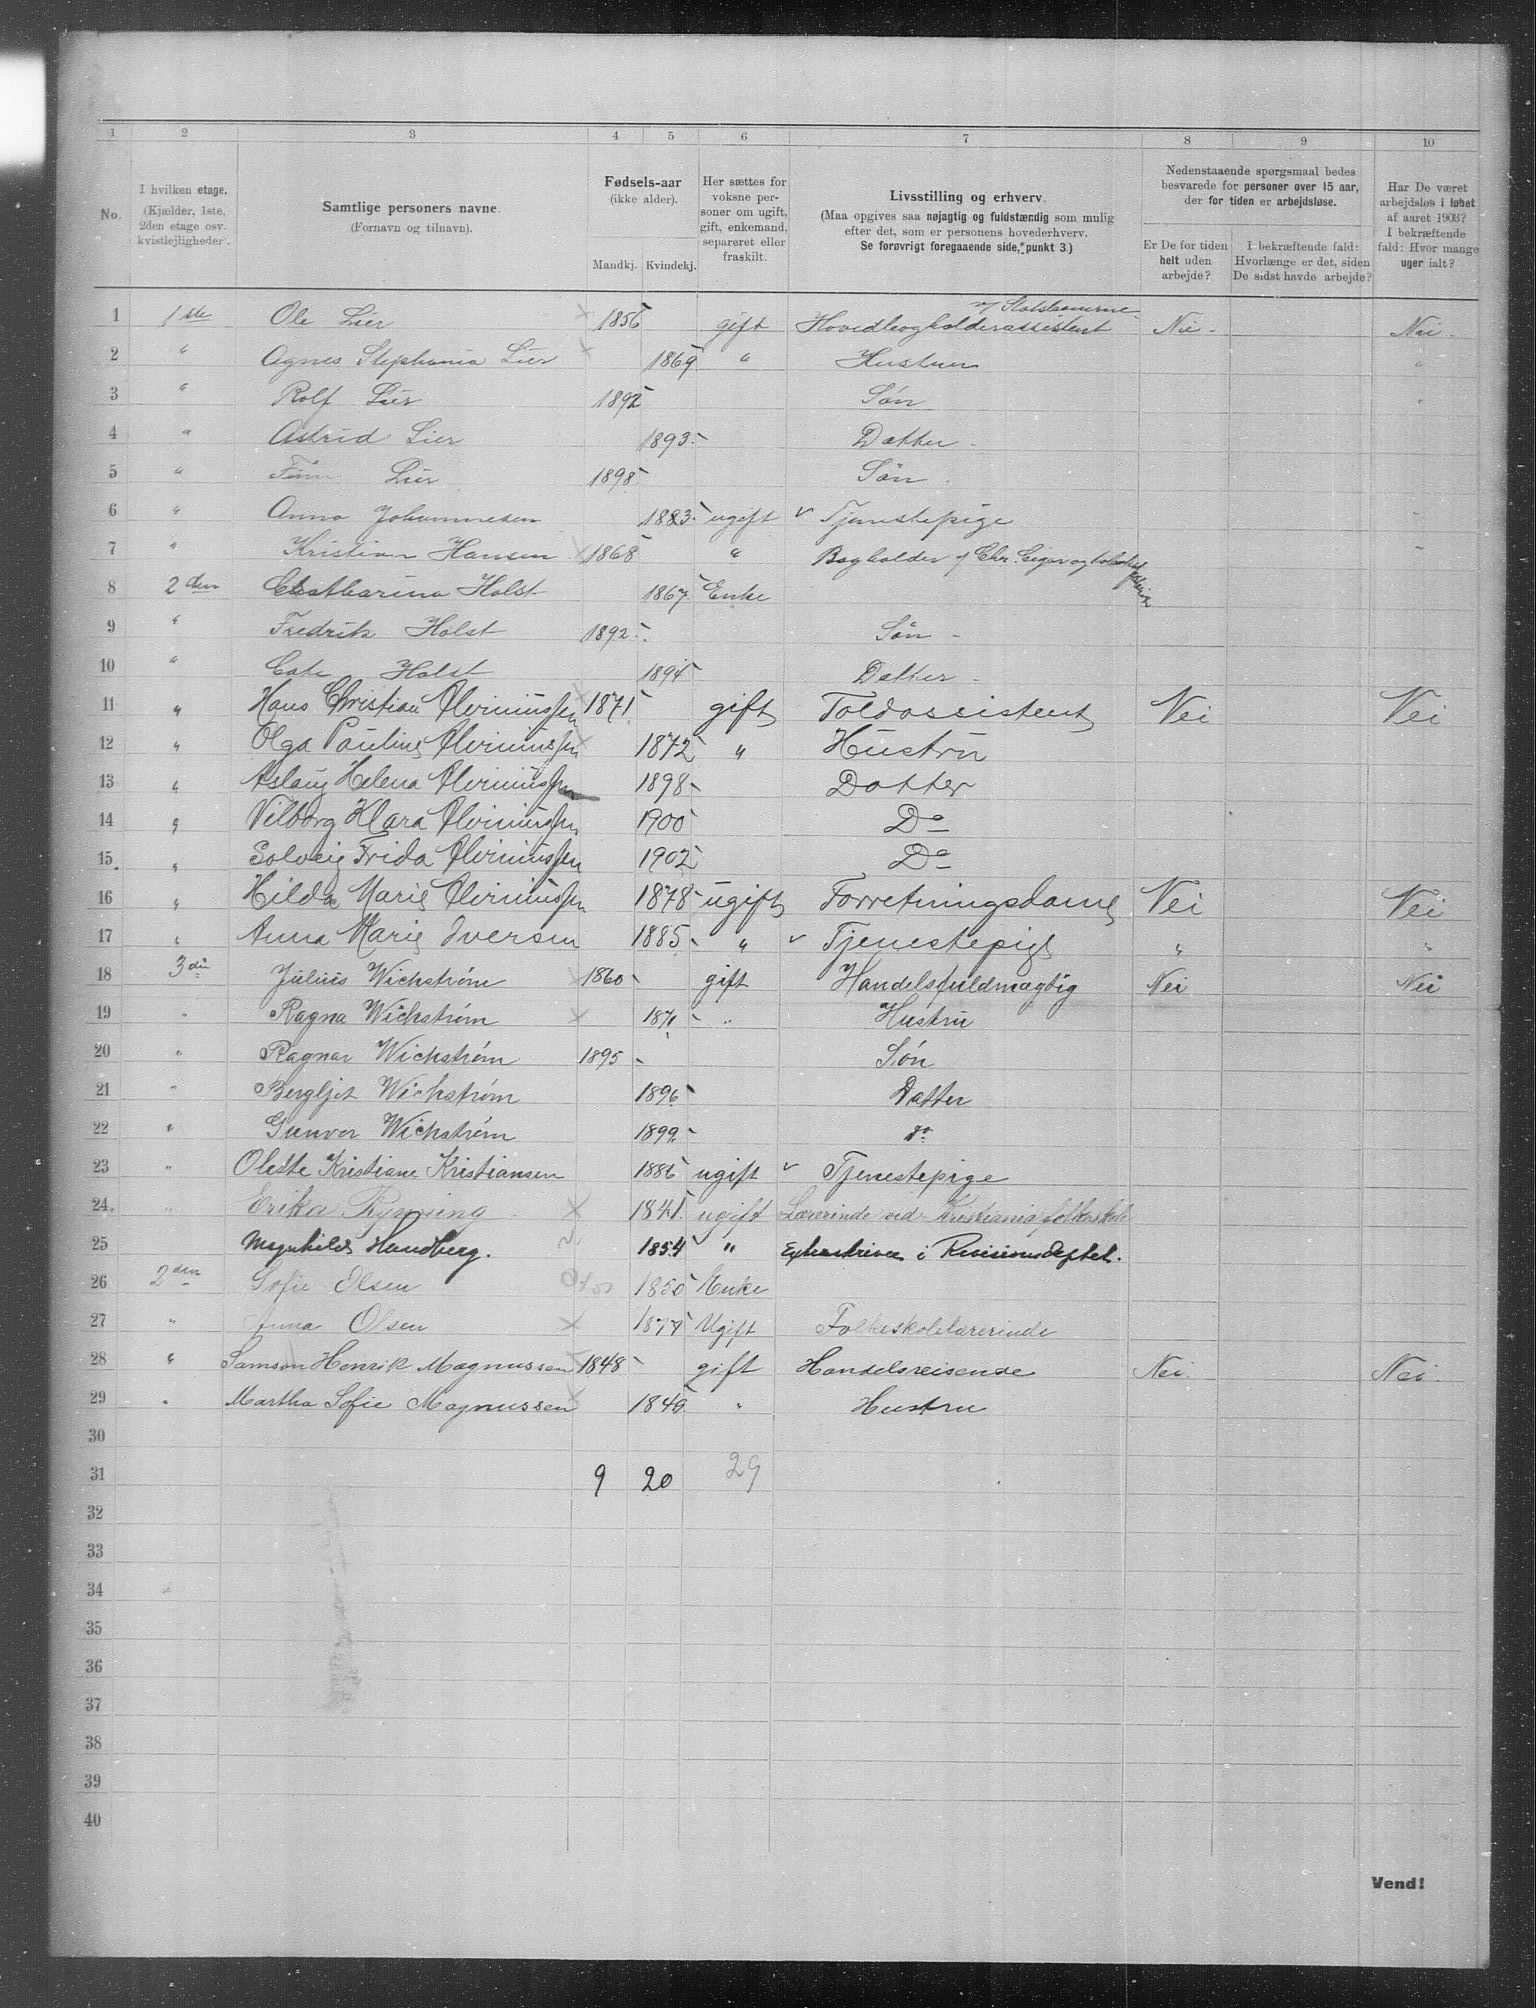 1 2 3 4 5 6 7 8 9 10
No.
I hvilken etage.
(Kjælder, 1ste,
2den etage osv.
kvistlejligheder).
Samtlige personers navne.
(Fornavn og tilnavn).
Fødsels-aar
(ikke alder).
Mandkj. Kvindekj.
Her sættes for
voksne per-
soner om ugift,
gift, enkemand,
separeret eller
fraskilt.
Livsstilling og erhverv.
(Maa opgives saa nøjagtig og fuldstændig som mulig
efter det, som er personens hovederhverv.
Se forøvrigt foregaaende side, punkt 3.)
Nedenstaaende spørgsmaal bedes
besvarede for personer over 15 aar,
der for tiden er arbejdsløse.
Er De for tiden
helt uden
arbejde?
I bekræftende fald:
Hvorlænge er det, siden
De sidst havde arbejde?
Har De været
arbejdsløs i løbet
af aaret 1903?
I bekræftende
fald: Hvor mange
uger ialt?
1 1ste Ole Lier 1856 gift Hovedbogholderassistent v/ Statsbanerne Nei. Nei.
2 " Agnes Stephania Lier 1869 " Hustru "
3 " Rolf Lier 1892 Søn "
4 " Astrid Lier 1893 Datter
5 " Finn Lier 1898 Søn
6 " Anna Johannesen 1883 ugift Tjenestepige "
7 " Kristian Hansen 1868 " Bogholder "
8 2den Catharina Holst 1867 Enke
9 " Fredrik Holst 1892 Søn
10 " Cate Holst 1894 Datter
11 " Hans Christian 1871 gift Toldassistent Nei Nei
12 " Olga Pauline 1872 " Hustru
13 " Aslaug Helena 1898 Datter
14 " Vilborg Klara 1900 Do
15 " Solveig Frida 1902 Do
16 " Hilda Marie 1878 ugift Forretningsdame Nei Nei
17 " Anna Marie Iversen 1885 " Tjenestepige " "
18 3die Julius Wichstrøm 1860 gift Handelsfuldmægtig Nei Nei
19 " Ragna Wichstrøm 1871 " Hustru
20 " Ragnar Wichstrøm 1895 Søn
21 " Bergljot Wichstrøm 1896 Datter
22 " Gunvor Wichstrøm 1899 do
23 " Olette Kristiane Kristiansen 1886 ugift Tjenestepige
24 " Erika 1841 ugift Lærerinde ved Kristiania folkeskole
25 Magnhild Handberg. 1854 " Extraskriver i Revisionsdeptet.
26 2den Sofie Olsen 1850 Enke
27 " Anna Olsen 1877 Ugift Folkeskolelærerinde
28 " Samson Henrik Magnussen 1848 gift Handelsreisende Nei. Nei.
29 " Martha Sofie Magnussen 1846 " Hustru
30
31 9 20 29
32
33
34
35
36
37
38
39
40
Vend!